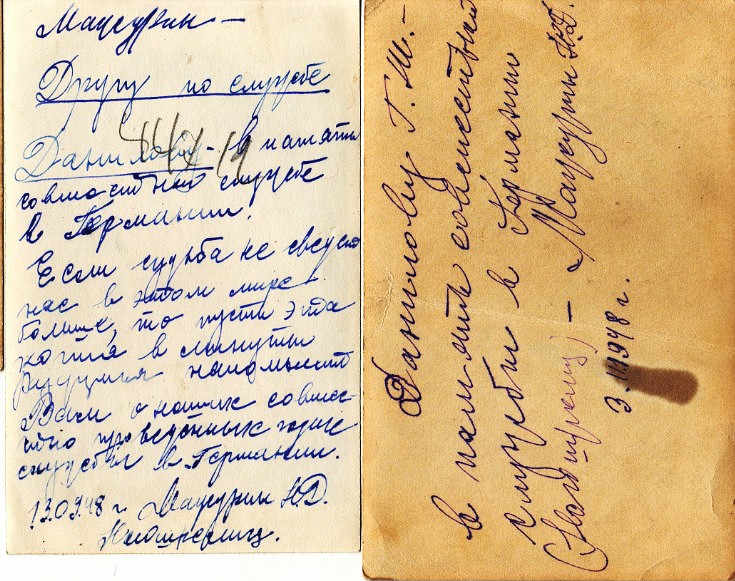 Мацурин –
Другу по службе
Данилову – в память
совместной службе
в Германии.
Если судьба не сведет
нас в этом мире
больше, то пусть эта
в минуты
напомнит
Вам о наших совмес-
тно проведенных годах
службы в Германии.
13.09.48 г. Мацурин Н.Д.
Данилову Г.Ш. –
в память совместный
службы в Германии
– Мацурин Н.Д.
1948 г.